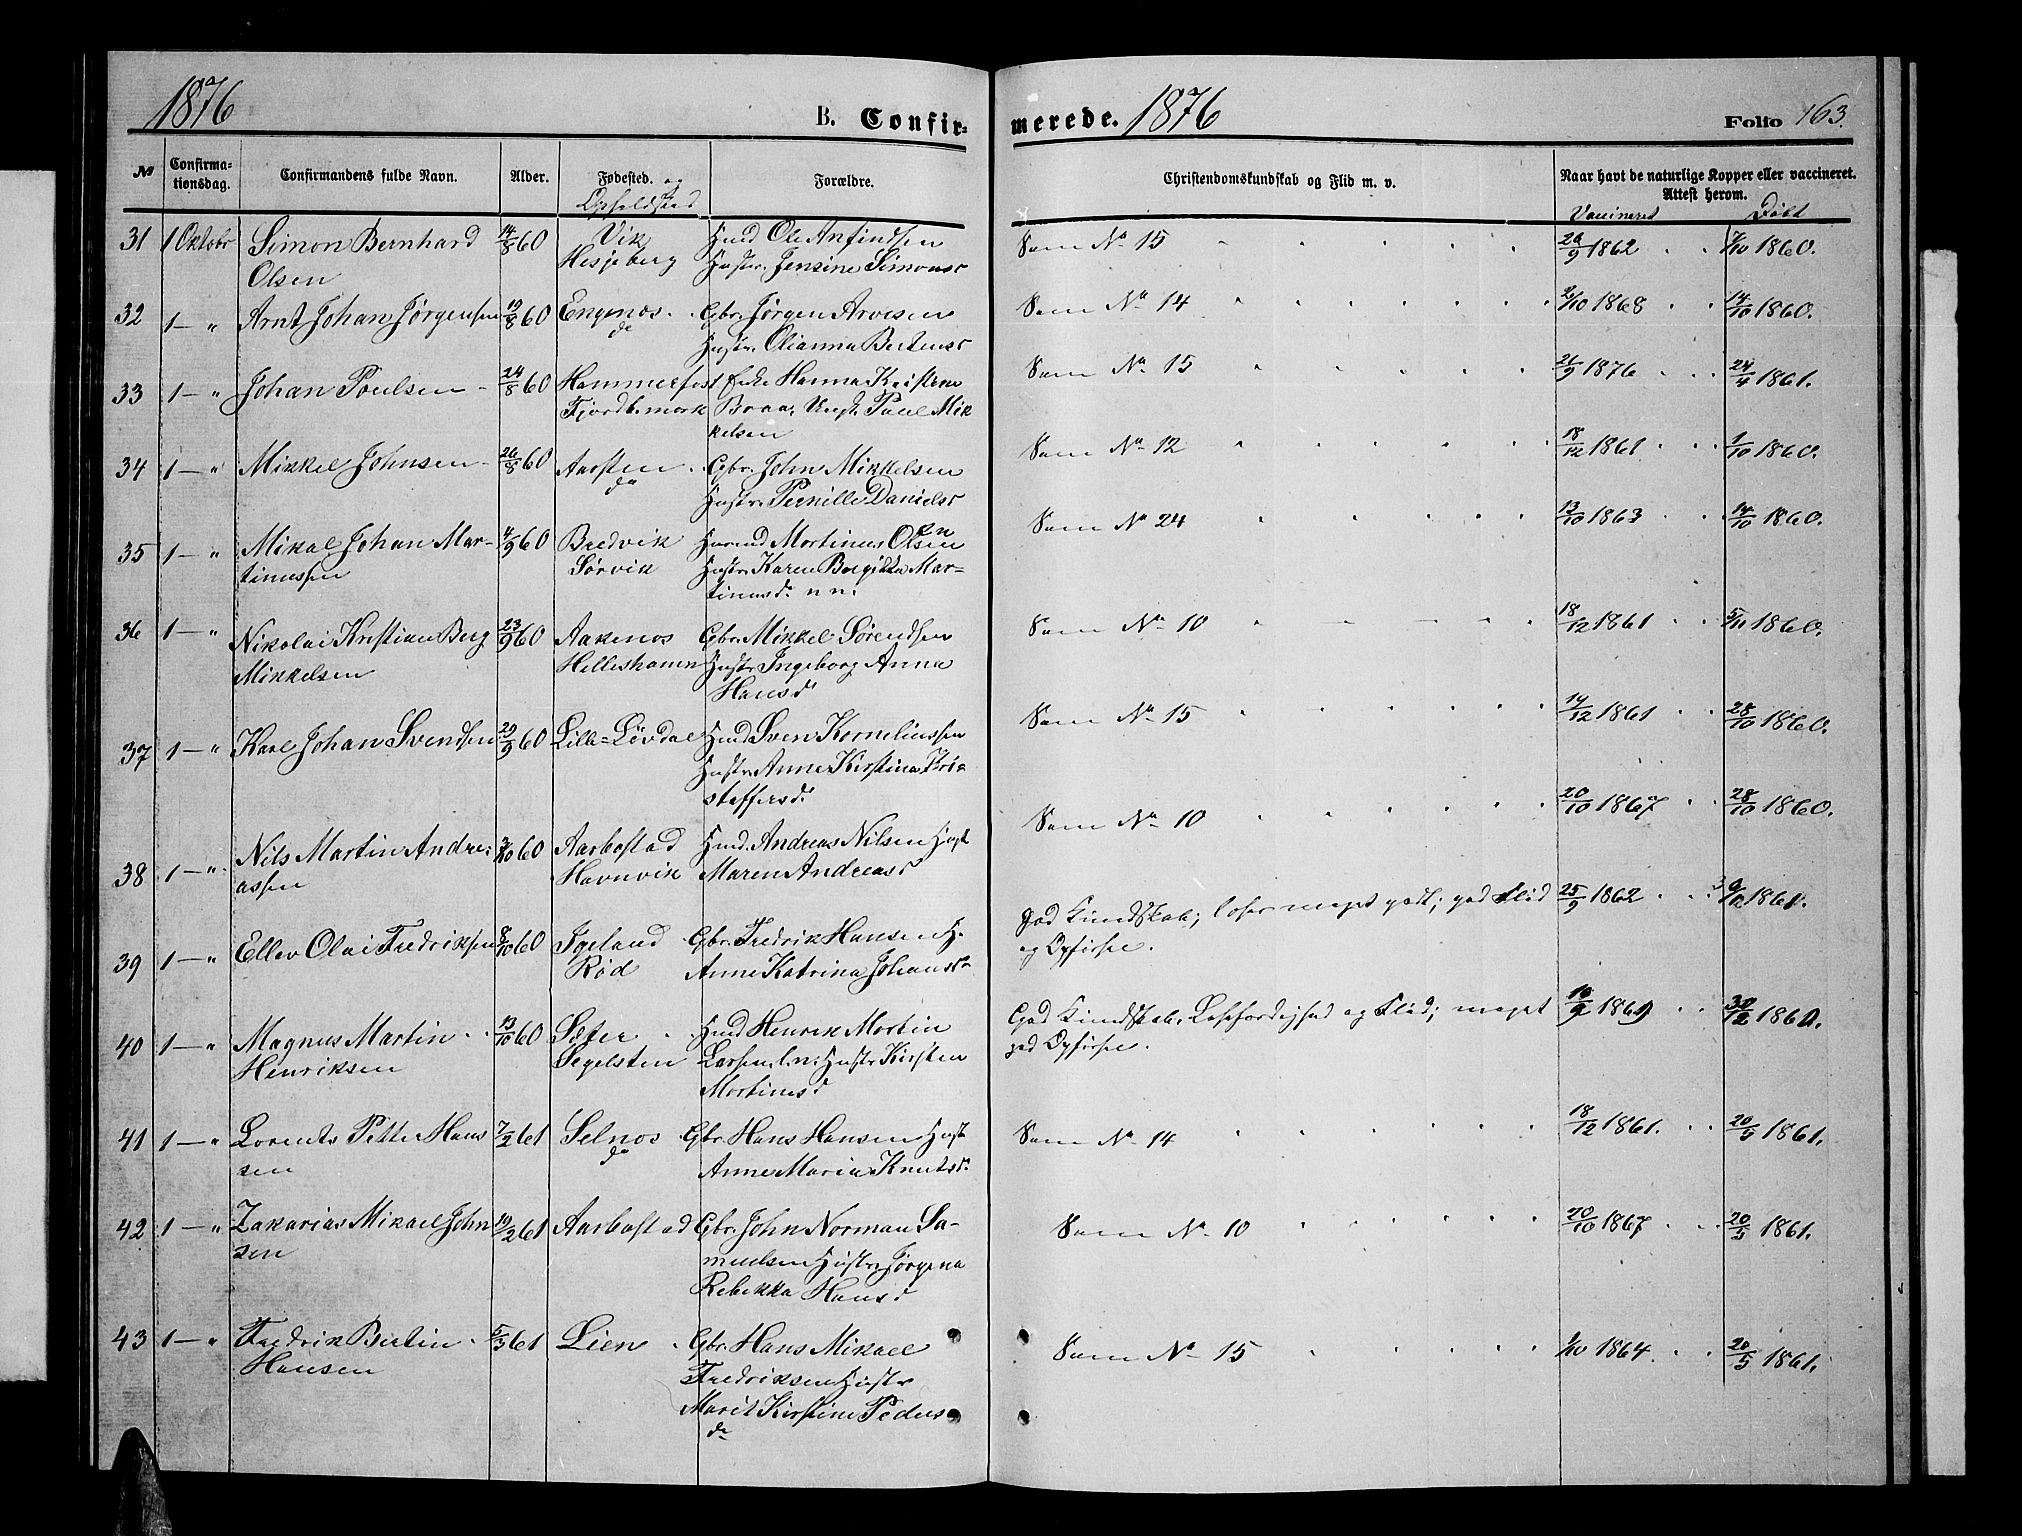 1876
B. Confir-
merede. 1876
Folio 163.
№
Confirma-
tionsdag.
Confirmandens fulde Navn.
Alder.
Fødested. og
Opholdsted
Forældre.
Christendomskundskab og Flid m. v.
Naar havt de naturlige Kopper eller vaccineret.
Attest herom.
Vaccineret
Döbt
31 1 Oktobr Simon Bernhard 14/8 60 Vik Huusmd Ole Anfindsen Som No 15 " " " " 26/9 1862 7/10 1860.
Olsen Hesjeberg Hustr. Jensine Simonsd
32 1 — " Arnt Johan Jørgensen 19/8 60 Engenos Gbr. Jørgen Arvesen Som No 14 " " " " 2/10 1868 14/10 1860.
do Hustr. Olianna Bertensd
33 1 — " Johan Poulsen 24/8 60 Hammerfost Enke Hanna Kristine Som No 15 " " " " 21/9 1876 24/4 1861.
Fjordbmark Braa, Ungk. Paul Mik
kelsen
34 1 — " Mikkel Johnsen 26/8 60 Aarsten Gbr. John Mikkelsen Som No 12 " " " " 18/12 1861 1/10 1860.
do Hustr. Pernille Danielsd
35 1 — " Mikal Johan Mar- 4/9 60 Bredvik Martinus Olsen Som No 24 " " " " 13/10 1863 14/10 1860.
tinussen Sørvik Hustr. Karen Birgitta Mar-
tinusd.
36 1 — " Nikolai Kristian Berg 23/9 60 Aakenos Gbr. Mikkel Sørendsen Som No 10 " " " " 18/12 1861 5/11 1860.
Mikkelsen Helleshamn Hustr. Ingeborg Anna
Hansd
37 1 — " Karl Johan Svendsen 29/9 60 Lille-Løvdal Hmd Sven Korneliussen Som No 15 " " " " 14/12 1861 28/10 1860.
Hustr. Anne Kirstina Kri-
stoffersd.
38 1 — " Nils Martin Andre- 3/10 60 Aarbostad Hmd. Andreas Nilsen Hust Som No 10 " " " " 20/10 1867 28/10 1860.
assen Havnvik Maren Andreasd
39 1 — " Ellev Olai Fredriksen 8/10 60 Igeland Gbr. Fredrik Hansen H. god Kundskab; læser meget godt; god Flid 25/9 1862 1861.
Rød Anne Katrina Johansd og Opførsel.
40 1 — " Magnus Martin 13/10 60 Sæter Hmd Henrik Martin God Kundskab, Læsefærdighed og Flid; meget 1869 30/12 1860.
Henriksen Segelsten Larsen Hustr Kirsten god Opførsel.
Martinsd
41 1 — " Lorents Petter Hans 7/2 61 Selnos Gbr. Hans Hansen Hust Som No 14 " " " " 18/12 1861. 20/5 1861.
sen do Anne Maria Knutsd.
42 1 — " Zakarias Mikael John 19/2 61 Aarbostad Gbr. John Norman Sa- Som No 10 " " " " 20/10 1867 20/5 1861.
sen muelsen Hustr. Jørgina
Rebekka Hansd
43 1 — " Fredrik Bertin 5/3 61 Lien Gbr. Hans Mikael Som No 15 " " " " 1/10 1864 20/5 1861.
Hansen Fredriksen Hustr
Marit Kirstine Peders
dr